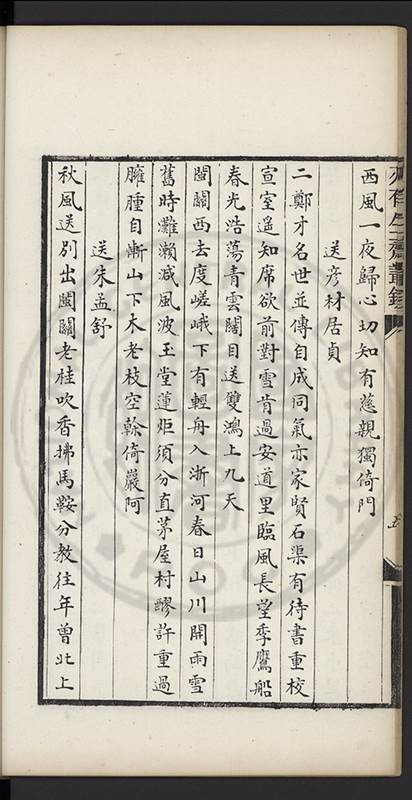 西風一夜歸心切知有慈親獨倚門
送彥材居貞
二鄭才名世並傳自成同氣亦家賢石渠有待書重校
宣室遥知席欲前對雪肯過安道里臨風長望季鷹船
春光浩蕩青雲闊目送雙鴻上九天
閩關西去度嵯峨下有輕舟入浙河春日山川開雨雪
舊時灘瀨減風波玉堂蓮炬須分直茅屋村醪許重過
臃腫自慚山下木老枝空榦倚巖阿
送朱孟舒
秋風送别出閩關老桂吹香拂馬鞍分教往年曾此上